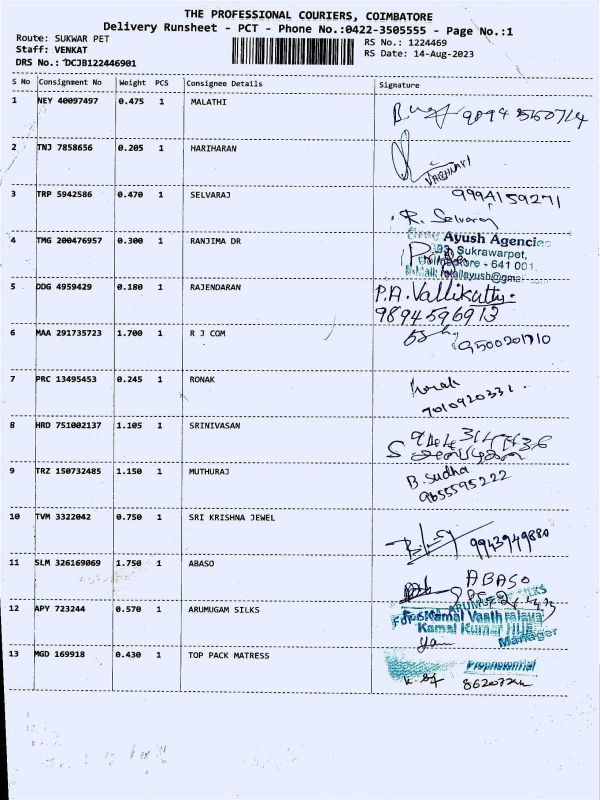 THE PROFESSIONAL COURIERS, COIMBATORE
Delivery Runsheet - PCT - Phone No.:0422-3505555 - Page No.:1
Route: SUKWAR PET
Staff: VENKAT
DRS No.: DCJB122446901
RS No.: 1224469
RS Date: 14-Aug-2023
S No Consignment No Weight PCS Consignee Details Signature
1 NEY 40097497 0.475 1 MALATHI
2 TNJ 7858656 0.205 1 HARIHARAN
3 TRP 5942586 0.470 1 SELVARAJ 9994159271
R. Selvaraj
4 TMG 200476957 0.300 1 RANJIMA DR
Ayush Agencies
93, Sukrawarpet,
Coimbatore - 641 001.
5 DDG 4959429 0.180 1 RAJENDARAN P.A. Vallikutty.
9894596913
6 MAA 291735723 1.700 1 R J COM 9500201710
7 PRC 13495453 0.245 1 RONAK
7010920331.
8 HRD 751002137 1.105 1 SRINIVASAN
9 TRZ 150732485 1.150 1 MUTHURAJ B. Sudha
9655595222
10 TVM 3322042 0.750 1 SRI KRISHNA JEWEL 9943949880
11 SLM 326169069 1.750 1 ABASO ABASO
12 APY 723244 0.570 1 ARUMUGAM SILKS
Kamal Kumar HUF
Manager
13 MGD 169918 0.430 1 TOP PACK MATRESS